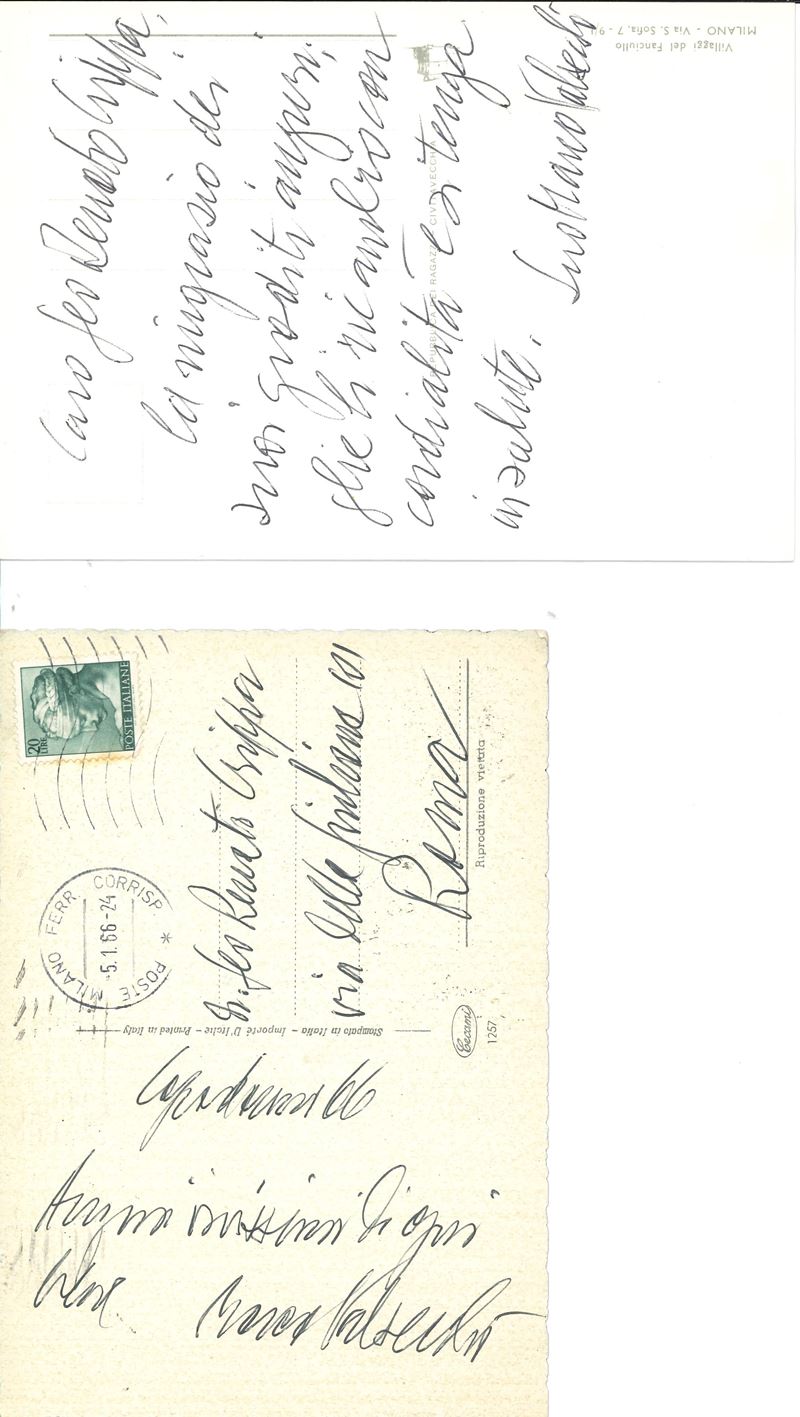 Villaggi del Fanciullo
MILANO - Via S. Sofia, 7 - 9/11
REPUBBLICA DEI RAGAZZI - CIVITAVECCHIA
Caro Geo Renato Crippa,
La ringrazio dei
suoi graditi auguri,
glieli ricambio con
cordialità e si tenga
in salute.
Suo Marco Valsecchi
20
LIRE
POSTE ITALIANE
MILANO FERR. CORRISP.
POSTE
-5.1.66-24
Dr. Geo Renato Crippa
via della Giuliana 101
Roma
Riproduzione vietata
Stampato in Italia - Importé D'Italie - Printed in Italy
Cecami
1257
Capodanno 66
Auguri vivissimi di ogni
bene
Marco Valsecchi